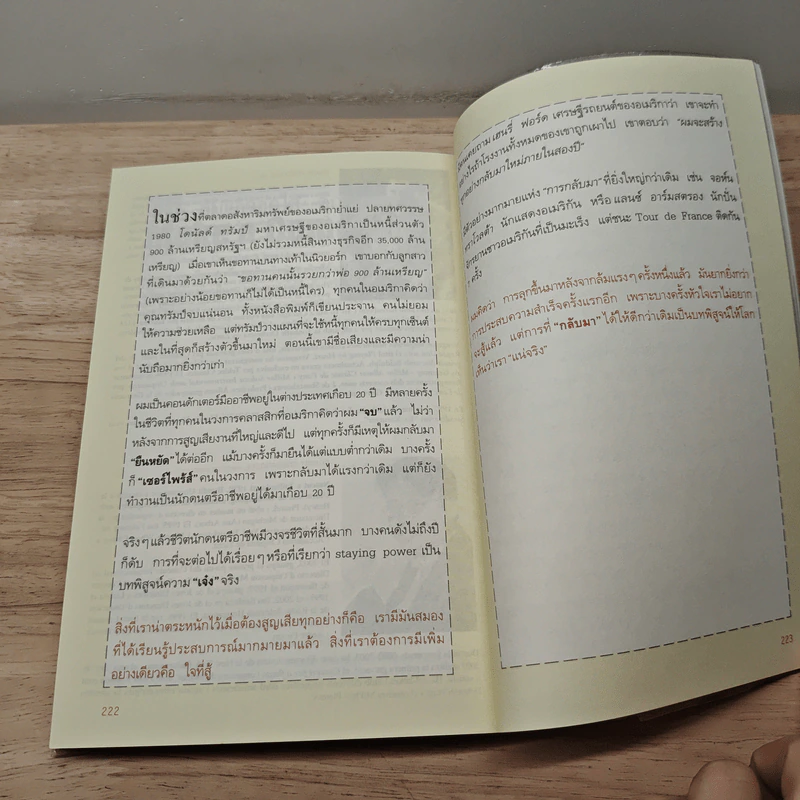 ในช่วงที่ตลาดอสังหาริมทรัพย์ของอเมริกาย่ำแย่ ปลายทศวรรษ
1980 โดนัลด์ ทรัมป์ มหาเศรษฐีของอเมริกาเป็นหนี้ส่วนตัว
900 ล้านเหรียญสหรัฐฯ (ยังไม่รวมหนี้สินทางธุรกิจอีก 35,000 ล้าน
เหรียญ) เมื่อเขาเห็นขอทานบนทางเท้าในนิวยอร์ก เขาบอกกับลูกสาว
ที่เดินมาด้วยกันว่า "ขอทานคนนั้นรวยกว่าพ่อ 900 ล้านเหรียญ"
(เพราะอย่างน้อยขอทานก็ไม่ได้เป็นหนี้ใคร) ทุกคนในอเมริกาคิดว่า
คุณทรัมป์จบแน่นอน ทั้งหนังสือพิมพ์ก็เขียนประจาน คนไม่ยอม
ให้ความช่วยเหลือ แต่ทรัมป์วางแผนที่จะใช้หนี้ทุกคนให้ครบทุกเซ็นต์
และในที่สุดก็สร้างตัวขึ้นมาใหม่ ตอนนี้เขามีชื่อเสียงและมีความน่า
นับถือมากยิ่งกว่าเก่า
ผมเป็นคอนดักเตอร์มืออาชีพอยู่ในต่างประเทศเกือบ 20 ปี มีหลายครั้ง
ในชีวิตที่ทุกคนในวงการคลาสสิกที่อเมริกาคิดว่าผม "จบ" แล้ว ไม่ว่า
หลังจากการสูญเสียงานที่ใหญ่และดีไป แต่ทุกครั้งก็มีเหตุให้ผมกลับมา
"ยืนหยัด" ได้ต่ออีก แม้บางครั้งก็มายืนได้แต่แบบต่ำกว่าเดิม บางครั้ง
ก็ "เซอร์ไพร้ส์" คนในวงการ เพราะกลับมาได้แรงกว่าเดิม แต่ก็ยัง
ทำงานเป็นนักดนตรีอาชีพอยู่ได้มาเกือบ 20 ปี
จริงๆ แล้วชีวิตนักดนตรีอาชีพมีวงจรชีวิตที่สั้นมาก บางคนดังไม่ถึงปี
ก็ดับ การที่จะต่อไปได้เรื่อยๆ หรือที่เรียกว่า staying power เป็น
บทพิสูจน์ความ "เจ๋ง" จริง
สิ่งที่เราน่าตระหนักไว้เมื่อต้องสูญเสียทุกอย่างก็คือ เรามีมันสมอง
ที่ได้เรียนรู้ประสบการณ์มากมายมาแล้ว สิ่งที่เราต้องการมีเพิ่ม
อย่างเดียวคือ ใจที่สู้
222
เคยถาม เฮนรี่ ฟอร์ด เศรษฐีรถยนต์ของอเมริกาว่า เขาจะทำ
อย่างไรถ้าโรงงานทั้งหมดของเขาถูกเผาไป เขาตอบว่า "ผมจะสร้าง
ทุกอย่างกลับมาใหม่ภายในสองปี"
ตัวอย่างมากมายแห่ง "การกลับมา" ที่ยิ่งใหญ่กว่าเดิม เช่น จอห์น
ทราโวลต้า นักแสดงอเมริกัน หรือ แลนซ์ อาร์มสตรอง นักปั่น
จักรยานชาวอเมริกันที่เป็นมะเร็ง แต่ชนะ Tour de France ติดกัน
ครั้ง
ผมคิดว่า การลุกขึ้นมาหลังจากล้มแรงๆ ครั้งหนึ่งแล้ว มันยากยิ่งกว่า
การประสบความสำเร็จครั้งแรกอีก เพราะบางครั้งหัวใจเราไม่อยาก
จะสู้แล้ว แต่การที่ "กลับมา" ได้ให้ดีกว่าเดิมเป็นบทพิสูจน์ให้โลก
เห็นว่าเรา "แน่จริง"
223